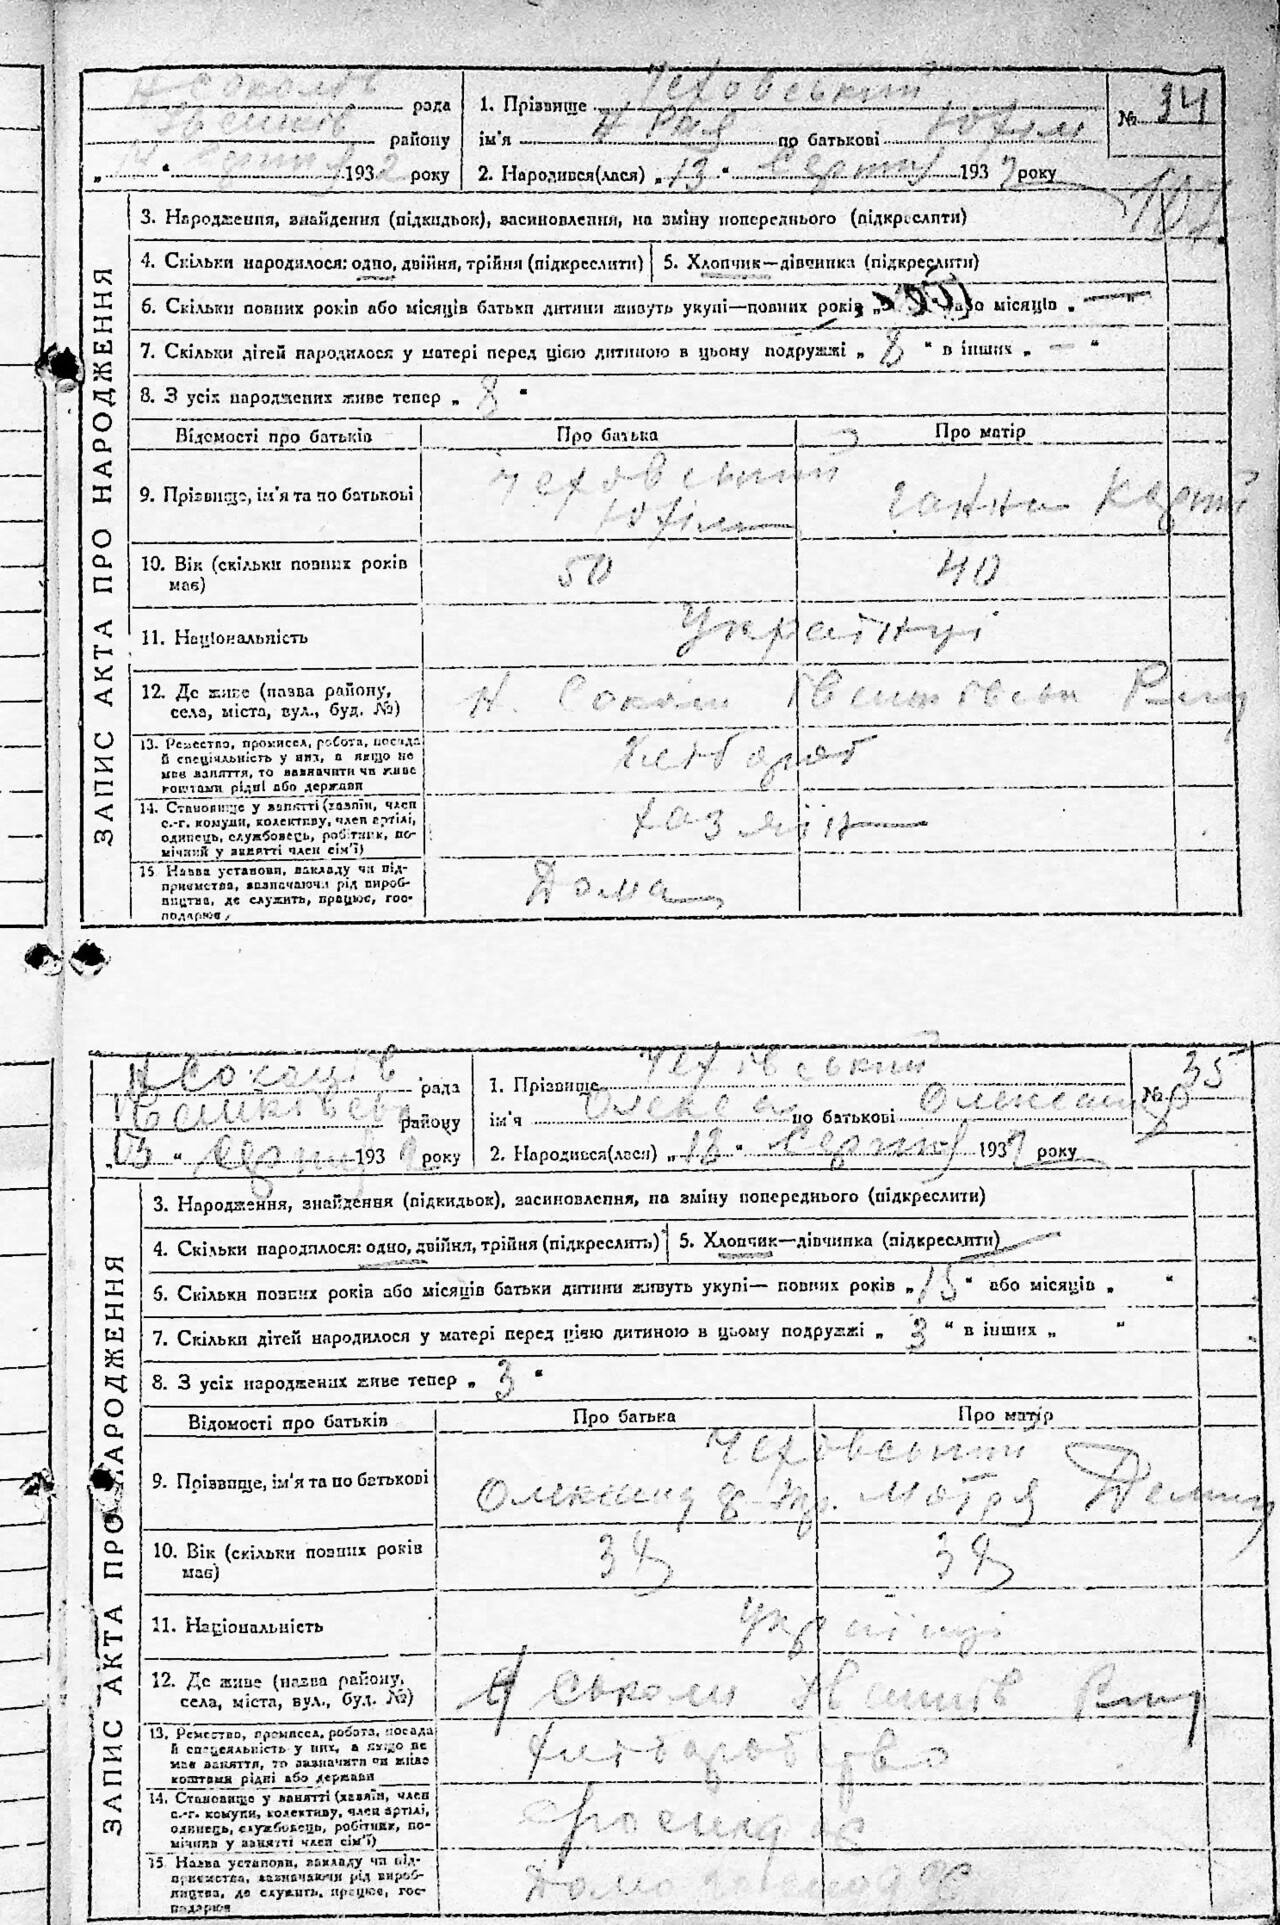 Н Соколів рада
району
193 2 року
1. Прізвище Чеховський
ім'я по батькові Юхім
2. Народився(лася) „13“ Серпня 193 року
№ 34
107.
ЗАПИС АКТА ПРО НАРОДЖЕННЯ
3. Народження, знайдення (підкидьок), засиновлення, на зміну попереднього (підкреслити)
4. Скільки народилося: одно, двійня, трійня (підкреслити)
5. Хлопчик—дівчинка (підкреслити)
6. Скільки повних років або місяців батьки дитини живуть укупі—повних років або місяців „—“
7. Скільки дітей народилося у матері перед цією дитиною в цьому подружжі „8“ в інших „—“
8. З усіх народжених живе тепер „8“
Відомості про батьків
Про батька
Про матір
9. Прізвище, ім'я та по батькові
Чеховський
Юхім
Ганна
10. Вік (скільки повних років
має)
50
40
11. Національність
Українці
12. Де живе (назва району,
села, міста, вул., буд. №)
Н.
13. Ремество, промисел, робота, посада
й спеціяльність у них, а якщо не
має заняття, то зазначити чи живе
коштами рідні або держави
Хлібороб
14. Становище у занятті (хазяїн, член
с.-г. комуни, колективу, член артілі,
одинець, службовець, робітник, по-
мічний у занятті член сім'ї)
хазяїн
15 Назва установи, закладу чи під-
приємства, зазначаючи рід вироб-
ництва, де служить, працює, гос-
подарює
Дома
Н Соколів рада
району
„13“ Серпня 193 року
1. Прізвище Чехівський
ім'я Олекса по батькові
2. Народився(лася) „13“ Серпня 193 року
№ 35
ЗАПИС АКТА ПРО НАРОДЖЕННЯ
3. Народження, знайдення (підкидьок), засиновлення, на зміну попереднього (підкреслити)
4. Скільки народилося: одно, двійня, трійня (підкреслить)
5. Хлопчик—дівчинка (підкреслити)
6. Скільки повних років або місяців батьки дитини живуть укупі— повних років „15“ або місяців „ “
7. Скільки дітей народилося у матері перед цією дитиною в цьому подружжі „3“ в інших „ “
8. З усіх народжених живе тепер „3“
Відомості про батьків
Про батька
Про матір
9. Прізвище, ім'я та по батькові
Чеховський
Мотря
10. Вік (скільки повних років
має)
38
38
11. Національність
Українці
12. Де живе (назва району,
села, міста, вул., буд. №)
Н
13. Ремество, промисел, робота, посада
й спецеяльність у них, а якщо не
має заняття, то зазначити чи живе
коштами рідні або держави
Хліборобство
14. Становище у занятті (хазяїн, член
с.-г. комуни, колективу, член артілі,
одинець, службовець, робітник, по-
мічник у занятті член сім'ї)
15 Назва установи, закладу чи під-
приємства, зазначаючи рід вироб-
ництва, де служить, працює, гос-
подарює
Дома